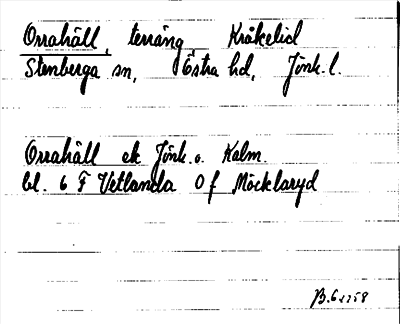 Orrahäll, terräng, Kråkelid
Stenberga sn, Östra hd, Jönk. l.
Orrahäll ek Jönk. o. Kalm.
bl. 6 F Vetlanda 0 f Möcklaryd